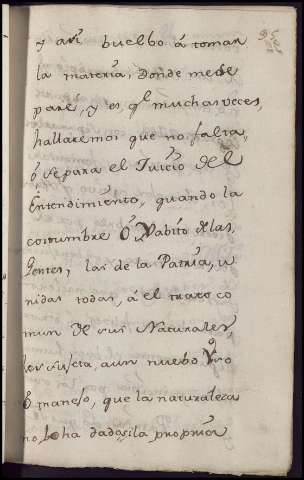 y asi buelbo á tomar
la materia, Donde mede
pare, y es, q.e muchas veces,
hallaremos que no falta,
ó se para el Juicio del
Entendimiento, quando la
costumbre Ó Habito delas,
Gentes, las de la Patria, u
nidas todas, á el trato co
mun de sus Naturales,
les sujeta, aun nuebo Uso
ó manejo, que la naturaleza
no, lo ha dado, si la propria